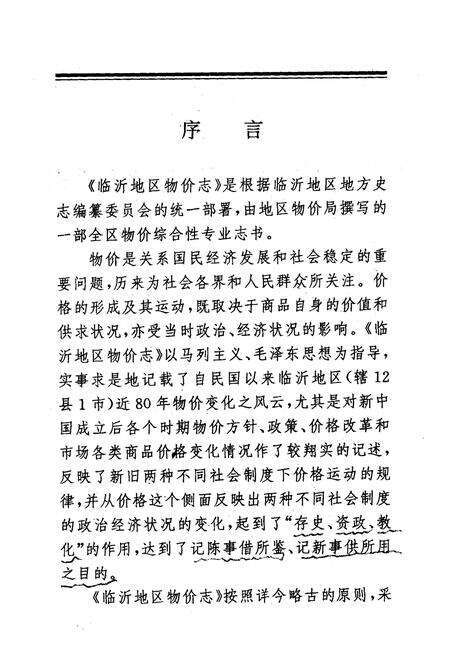 序 言
《临沂地区物价志》是根据临沂地区地方史
志编纂委员会的统一部署,由地区物价局撰写的
一部全区物价综合性专业志书。
物价是关系国民经济发展和社会稳定的重
要问题,历来为社会各界和人民群众所关注。价
格的形成及其运动,既取决于商品自身的价值和
供求状况,亦受当时政治、经济状况的影响。《临
沂地区物价志》以马列主义、毛泽东思想为指导,
实事求是地记载了自民国以来临沂地区(辖12
县1市)近80年物价变化之风云,尤其是对新中
国成立后各个时期物价方针、政策、价格改革和
市场各类商品价格变化情况作了较翔实的记述,
反映了新旧两种不同社会制度下价格运动的规
律,并从价格这个侧面反映出两种不同社会制度
的政治经济状况的变化,起到了“存史、资政、教
化”的作用,达到了记陈事借所鉴、记新事供所用
之目的。
《临沂地区物价志》按照详今略古的原则,采